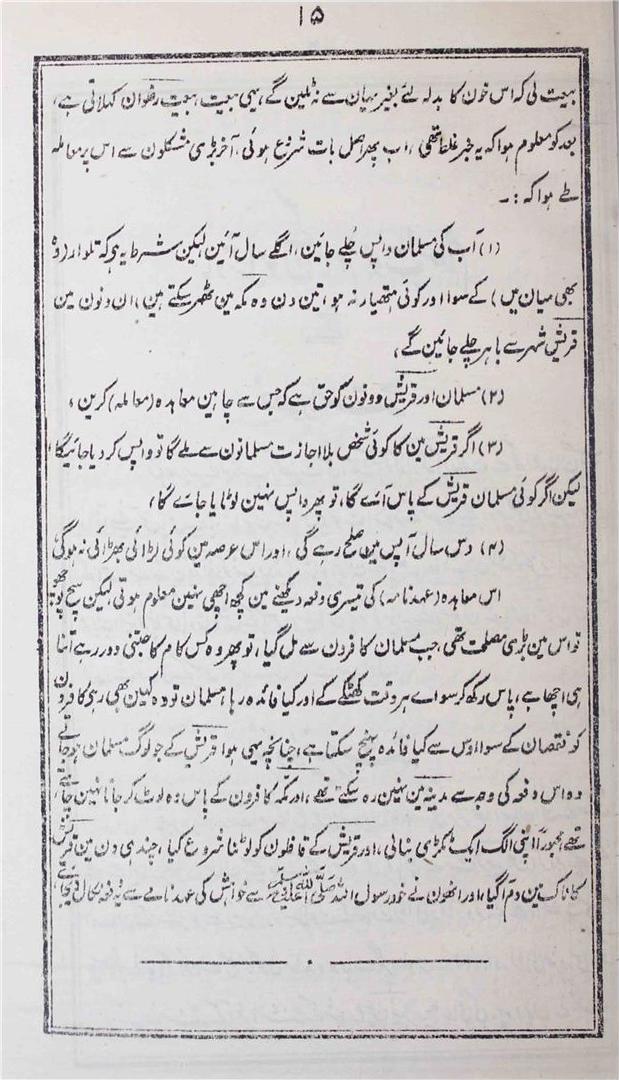 ۱۵
بیعت لی کہ اس خون کا بدلہ لئے بغیر یہان سے نہ ٹلین گے، یہی بیعت، بیعت رضوان کہلاتی ہے،
بعد کو معلوم ہوا کہ یہ خبر غلط تھی، اب پھر اصل بات شروع ہوئی، آخر بڑی مشکلون سے اس پر معاملہ
طے ہوا کہ :۔
(۱) اَب کی مسلمان واپس چلے جائین، اگلے سال آئین لیکن شرط یہ ہی کہ تلوار (وہ
بھی میان میں) کے سوا اور کوئی ہتھیار نہ ہو، تین دن وہ مکہ مین ٹھہر سکتے ہین، ان دنون مین
قریش شہر سے باہر چلے جائین گے،
(۲) مسلمان اور قریش دونون کو حق ہے کہ جس سے چاہین معاہدہ (معاملہ) کرین،
(۳) اگر قریش مین کا کوئی شخص بلا اجازت مسلمانون سے ملے گا تو واپس کر دیا جائیگا
لیکن اگر کوئی مسلمان قریش کے پاس آئے گا، تو پھر واپس نہین لوٹایا جائے گا،
(۴) دس سال آپس مین صلح رہے گی، اور اس عرصہ مین کوئی لڑائی بھڑائی نہ ہوگی
اس معاہدہ (عہدنامہ) کی تیسری دفعہ دیکھنے مین کچھ اچھی نہین معلوم ہوتی لیکن سچ پوچھو
تو اس مین بڑی مصلحت تھی، جب مسلمان کافرون سے مل گیا، تو پھر وہ کس کام کا جتنی دور رہے اتنا
ہی اچھا ہے، پاس رکھ کر سوائے ہر وقت کھٹکے کے اور کیا فائدہ رہا مسلمان تو وہ کہین بھی رہی کافرون
کو نقصان کے سوا اوس سے کیا فائدہ پہنچ سکتا ہے، چنانچہ یہی ہوا قریش کے جو لوگ مسلمان ہو جاتے
وہ اس دفعہ کی وجہ سے مدینہ مین نہین رہ سکتے تھے، اور مکہ کافرون کے پاس وہ لوٹ کر جانا نہین چاہتے
تھے، مجبوراً اپنی الگ ایک ٹکڑی بنالی، اور قریش کے قافلون کو لوٹنا شروع کیا، چند ہی دن مین قریش
کا ناک مین دم آگیا، اور انھون نے خود رسول اللہ صلی اللہ علیہ وسلم سے خواہش کی عہدنامے سے یہ دفعہ نکال دیجائے،